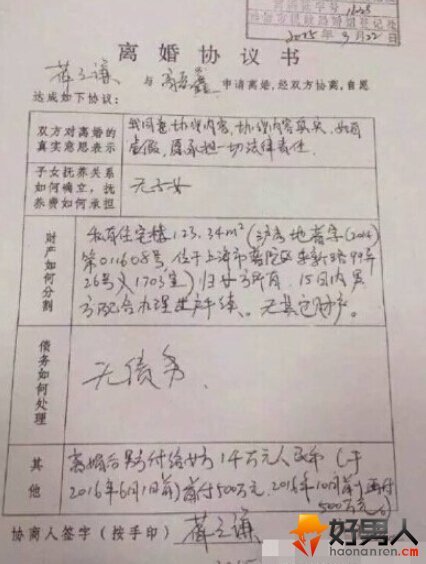 2015年9月22日
离 婚 协 议 书
薛之谦 与 高磊鑫 申请离婚,经双方协商,自愿
达成如下协议:
双方对离婚的
真实意思表示
我同意协议内容,协议内容真实,如有
虚假,愿承担一切法律责任.
子女抚养关系
如何确立,抚
养费如何承担
无子女
财产如何分割
私有住宅楼123.34m²(沪房地普字(2014)
第011608号,位于上海市普陀区 新路99弄
26号 1703室)归女方所有.15日内男
方配合办理过户手续.无其它财产.
债务如何处理
无债务.
其他
离婚后男方付给女方 万元人民币(于
2016年6月1日前)首付500万元,2016年10月前再付
500万元.)
协商人签字(按手印) 薛之谦
2015
好男人
haonanren.cm